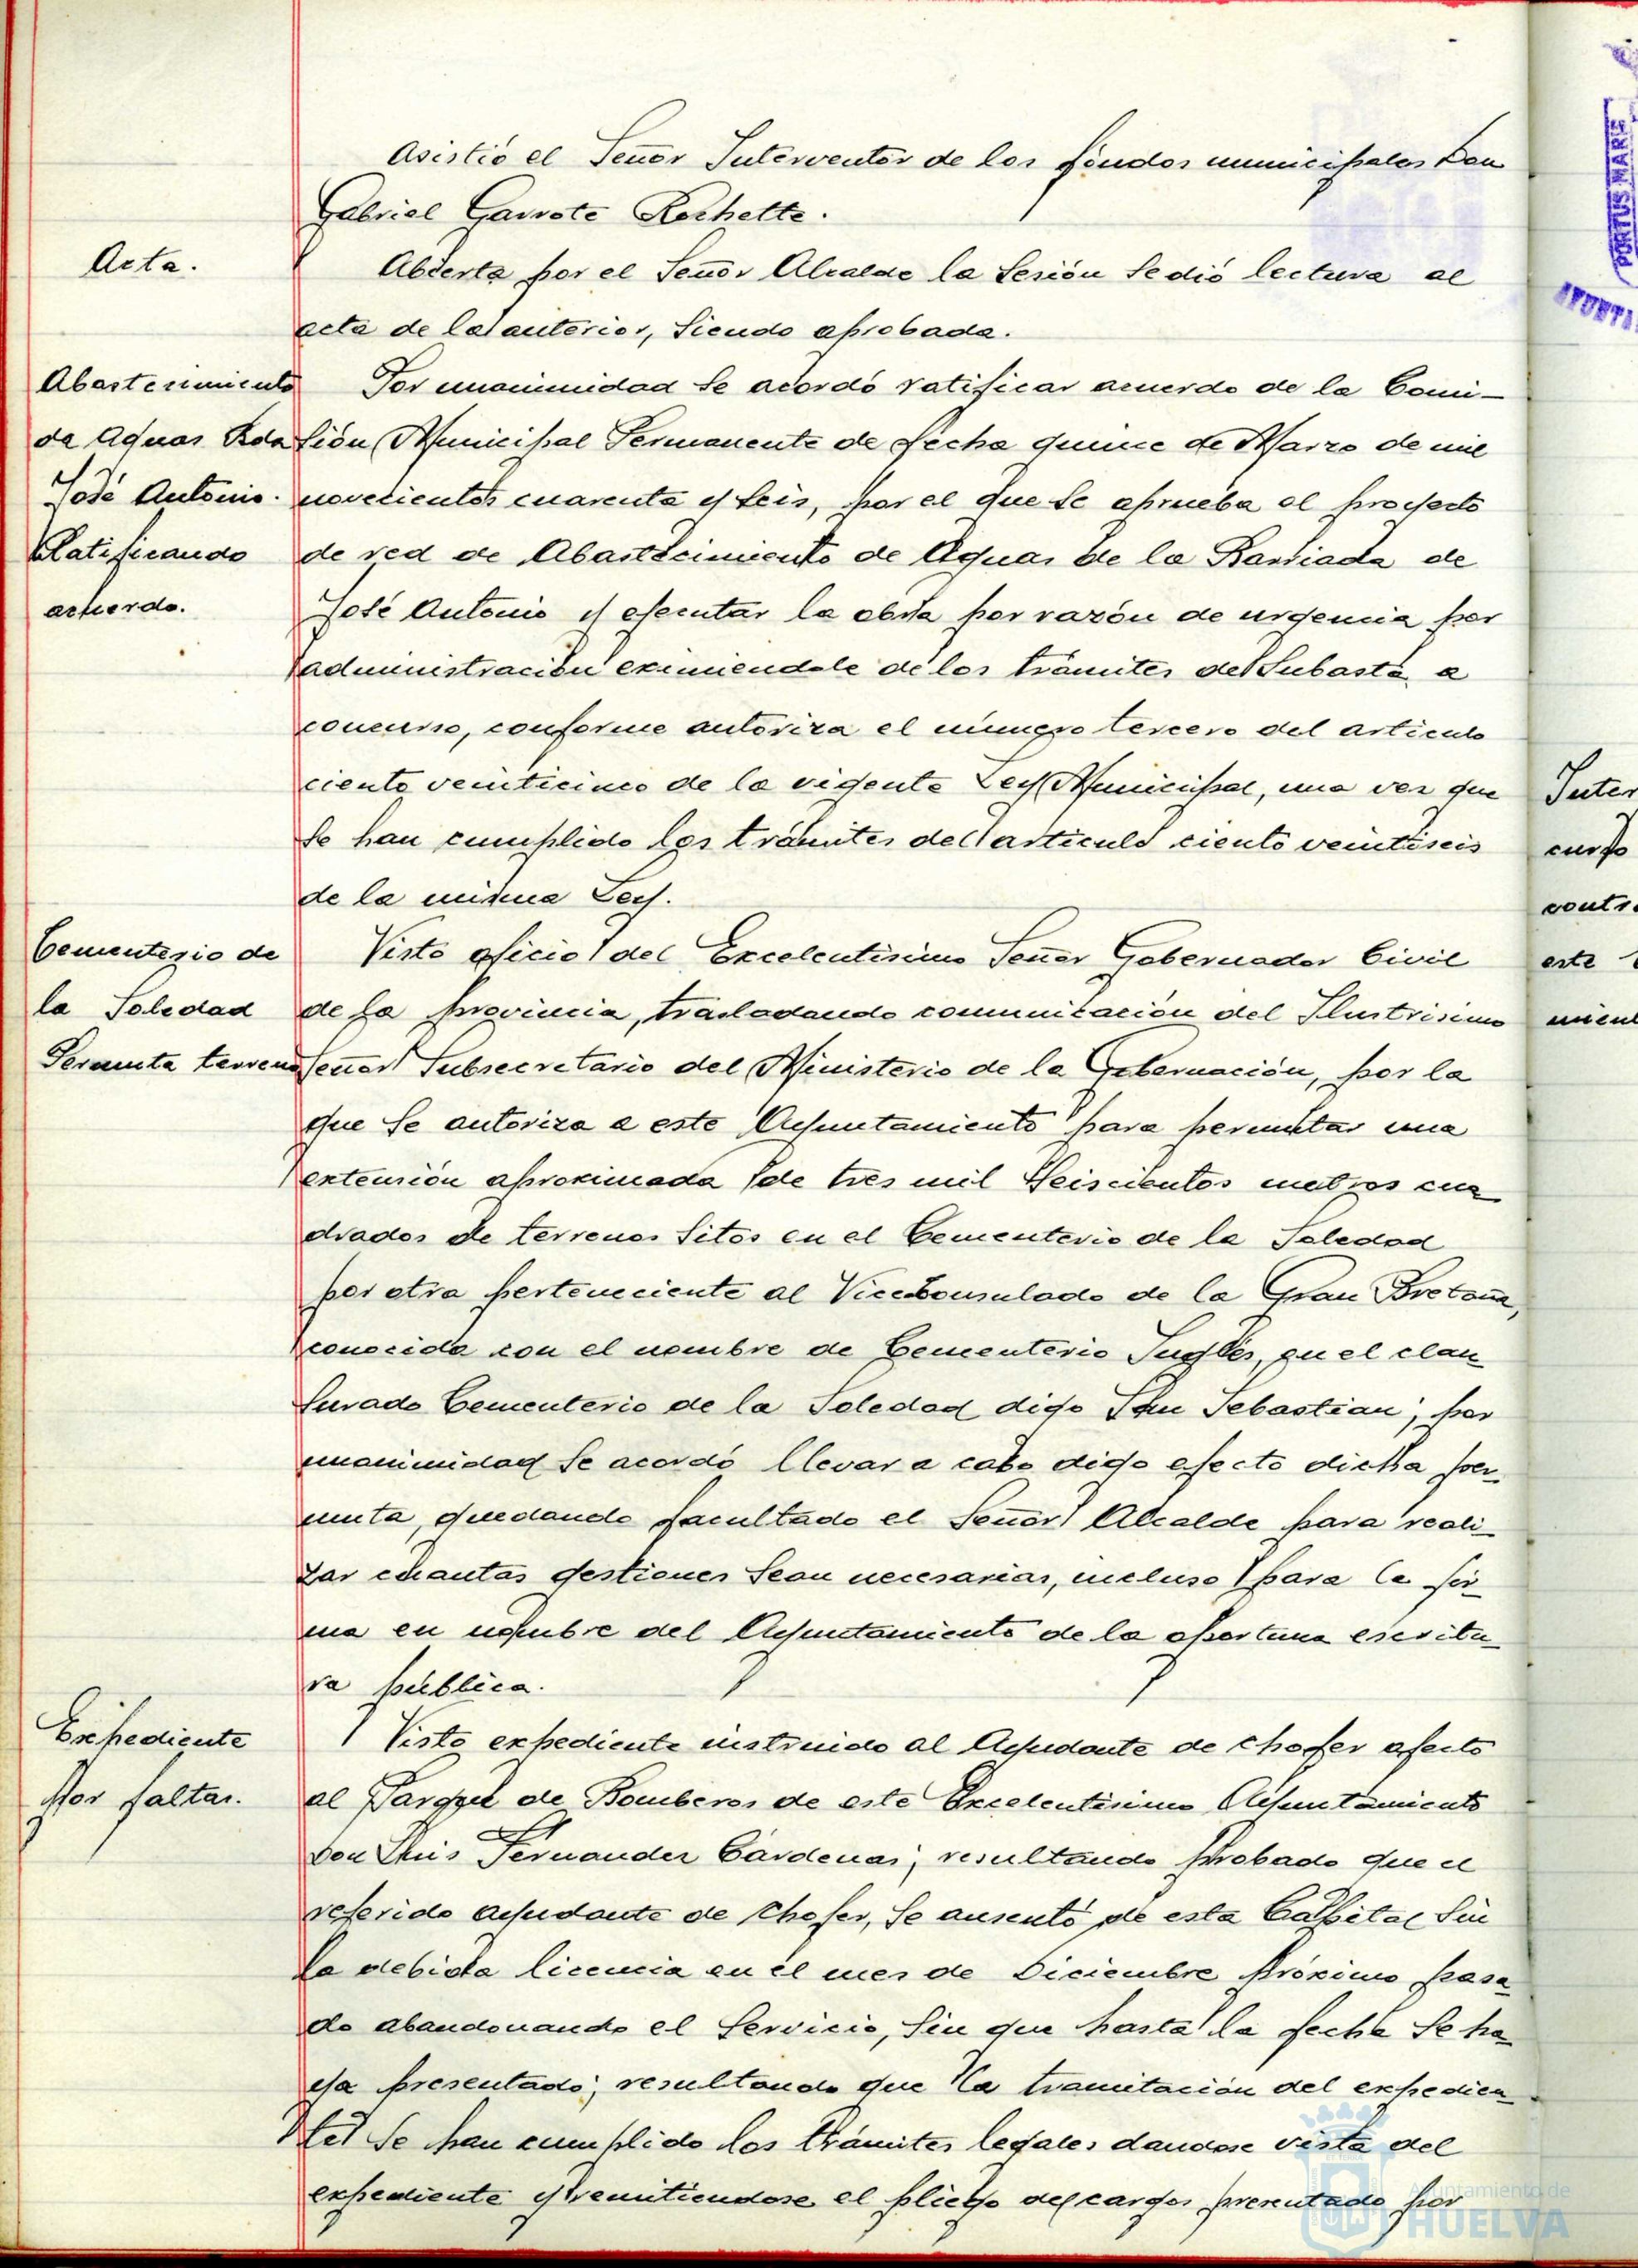 Asistió el Señor Interventor de los fondos municipales Don
Gabriel Garrote Rochette.
Acta.
Abierta por el Señor Alcalde la Sesión Se dió lectura al
acta de la anterior, Siendo aprobada.
Abastecimiento
de Aguas Bda
José Antonio.
Ratificando
acuerdo.
Por unanimidad Se acordó ratificar acuerdo de la Comi-
sión Municipal Permanente de fecha quince de Marzo de mil
novecientos cuarenta y seis, por el que Se aprueba el proyecto
de red de Abastecimiento de Aguas de la Barriada de
José Antonio y ejecutar la obra por razón de urgencia por
administración eximiendole de los trámites de Subasta a
concurso, conforme autoriza el número tercero del articulo
ciento veinticinco de la vigente Ley Municipal, una vez que
Se han cumplido los trámites del articulo ciento veintiseis
de la misma Ley.
Cementerio de
la Soledad
Permuta terrenos
Visto oficio del Excelentisimo Señor Gobernador Civil
de la provincia, trasladando comunicación del Ilustrisimo
Señor Subsecretario del Ministerio de la Gobernación, por la
que Se autoriza a este Ayuntamiento para permutar una
extensión aproximada de tres mil Seiscientos metros cua
drados de terrenos Sitos en el Cementerio de la Soledad
por otra perteneciente al Viceconsulado de la Gran Bretaña,
conocida con el nombre de Cementerio Inglés, en el clau
surado Cementerio de la Soledad digo San Sebastian; por
unanimidad Se acordó llevar a cabo digo efecto dicha per
muta, quedando facultado el Señor Alcalde para reali
zar cuantas gestiones Sean necesarias, incluso para la fir
ma en nombre del Ayuntamiento de la oportuna escritu
ra pública.
Expediente
por faltas.
Visto expediente instruido al Ayudante de chofer afecto
al Parque de Bomberos de este Excelentisimo Ayuntamiento
Don Luis Fernandez Cárdenas; resultando probado que el
referido ayudante de chofer, Se ausentó de esta Capital Sin
la debida licencia en el mes de Diciembre próximo pasa
do abandonando el Servicio, Sin que hasta la fecha Se ha
ya presentado; resultando que la tramitación del expedien
te Se han cumplido los trámites legales dandose vista del
expediente y remitiendose el pliego de cargos presentado por
PORTUS MARIS
Inter
curso
contr
este
mien
Ayuntamiento de
HUELVA